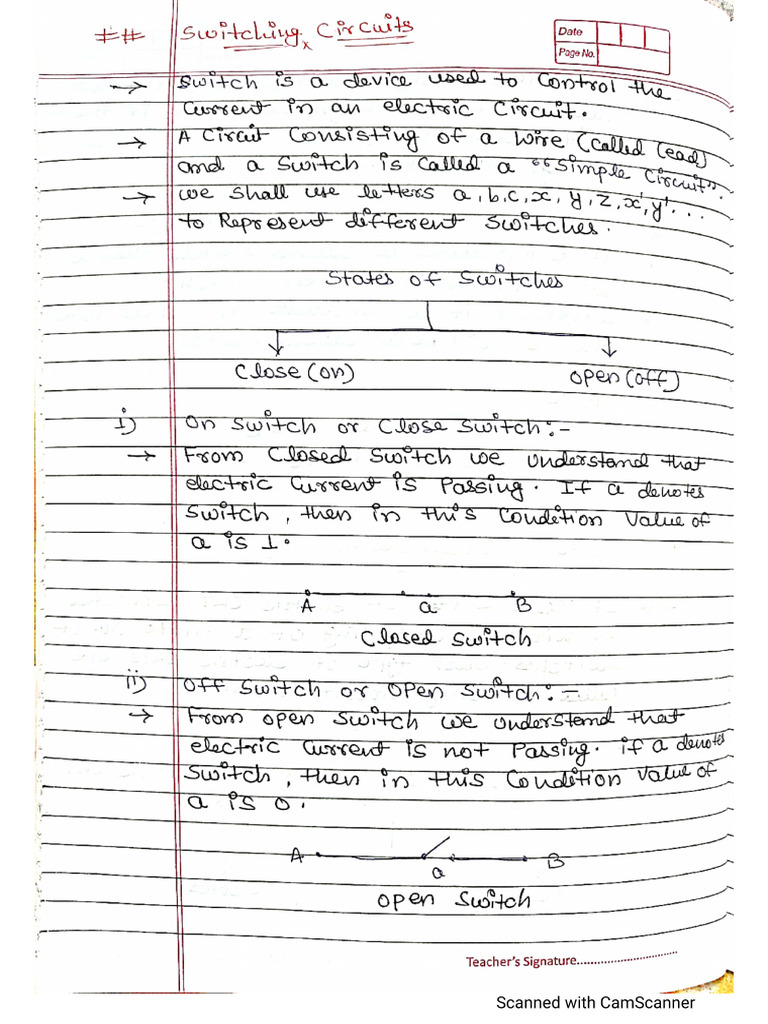 ## Switching Circuits
Date
Page No.
→ Switch is a device used to control the
current in an electric circuit.
→ A circuit consisting of a wire (called lead)
and a switch is called a "simple circuit".
→ we shall use letters a, b, c, x, y, z, x', y'...
to Represent different switches.
States of Switches
Close (on) Open (off)
i) On switch or Close switch :-
→ From Closed switch we understand that
electric current is passing. If a denotes
switch, then in this condition value of
a is 1.
A a B
Closed switch
ii) Off switch or open switch :-
→ From open switch we understand that
electric current is not passing. if a denotes
switch, then in this condition value of
a is 0.
A a B
open switch
Teacher's Signature..............................
Scanned with CamScanner